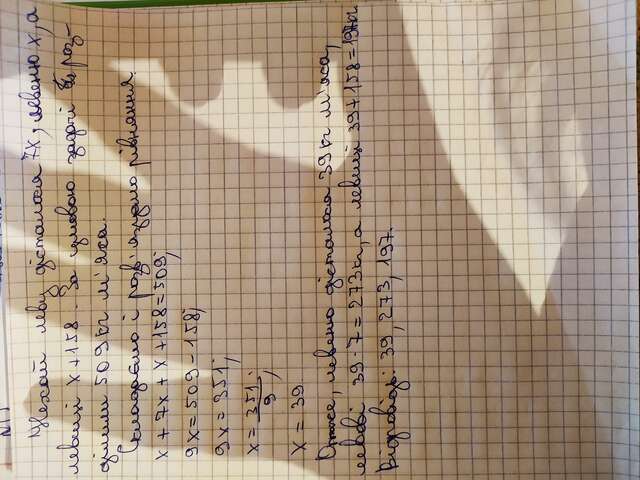 N1
Нехай леву дісталося 7x, левеню x, а
левиці x + 158. За умовою задачі роз-
ділили 509 кг м'яса.
Складаємо і розв'язуємо рівняння:
x + 7x + x + 158 = 509;
9x = 509 - 158;
9x = 351;
x = 351/9;
x = 39
Отже, левеню дісталося 39 кг м'яса,
левові 39 · 7 = 273 кг, а левиці 39 + 158 = 197 кг.
Відповіді: 39, 273, 197.